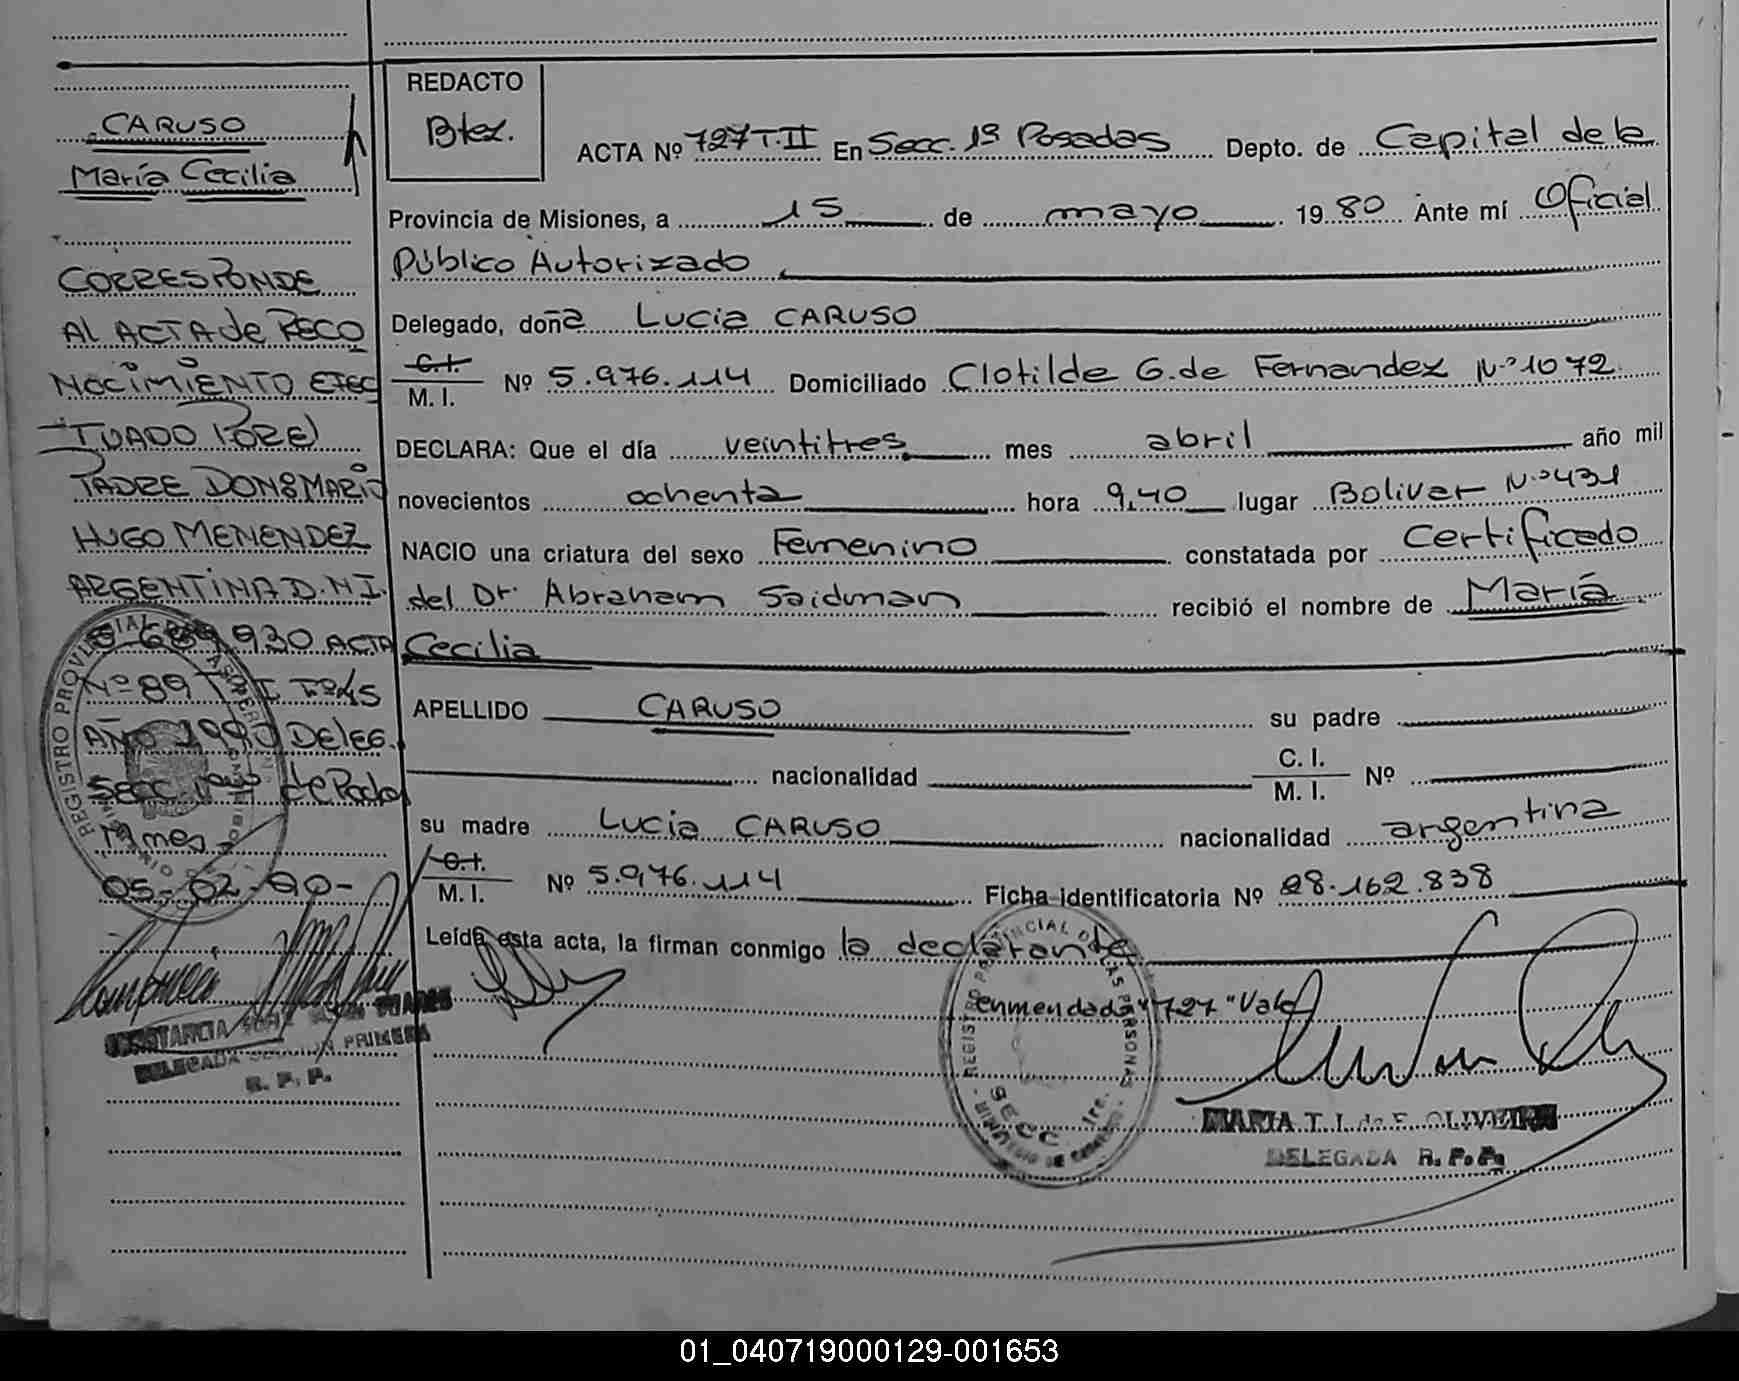 CARUSO
María Cecilia
CORRESPONDE
AL ACTA de RECO
NOCIMIENTO EFEC
TUADO POR El
PADRE DON OMARIO
HUGO MENENDEZ
ARGENTINA D.N.I.
930 ACTA
Nº 89 T I Fº 45
AÑO 1990 DELEG.
SECC 1ra de Posadas
Mnes
05-02-90-
DELEGADA SECCION PRIMERA
R. P. P.
REDACTO
Btez.
ACTA Nº 727 T.II En Secc. 1ª Posadas Depto. de Capital de la
Provincia de Misiones, a 15 de mayo 1980 Ante mí Oficial
Público Autorizado
Delegado, doña Lucia CARUSO
C.I.
M. I. Nº 5.976.114 Domiciliado Clotilde G. de Fernandez Nº 1072
DECLARA: Que el día veintitres mes abril año mil
novecientos ochenta hora 9,40 lugar Bolivar Nº 431
NACIO una criatura del sexo Femenino constatada por Certificado
del Dr. Abraham Saidman recibió el nombre de María
Cecilia
APELLIDO CARUSO su padre
nacionalidad C. I.
M. I. Nº
su madre Lucia CARUSO nacionalidad argentina
C.I.
M. I. Nº 5.976.114 Ficha identificatoria Nº 28.162.838
Leída esta acta, la firman conmigo la declarante
enmendada "727" Vale
REGISTRO PROVINCIAL DE LAS PERSONAS
SECC. 1ra.
MARIA T. I. de F. OLIVEIRA
DELEGADA R. P. P.
01_040719000129-001653